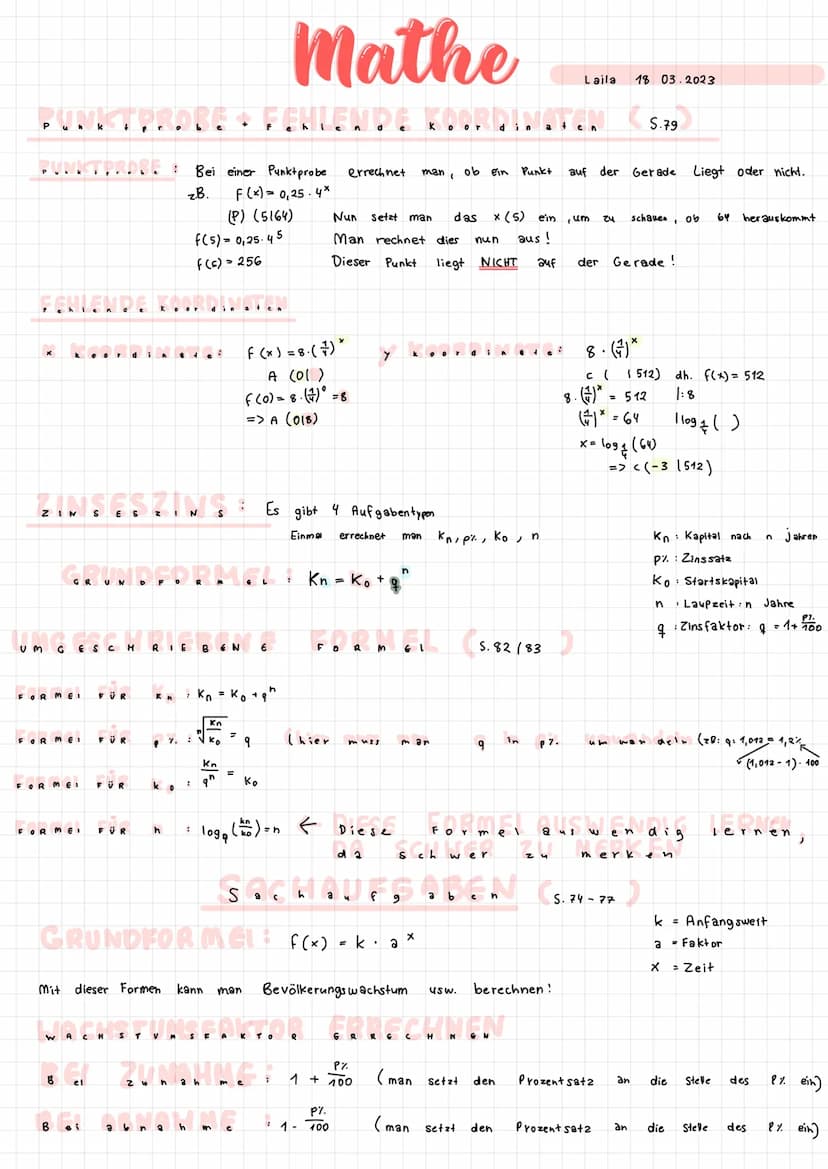 Mathe
Laila 18 03.2023
Punktprobe + Fehlende Koordinaten (S.79)
Punktprobe : Bei einer Punktprobe errechnet man, ob ein Punkt auf der Gerade Liegt oder nicht.
zB. F(x) = 0,25 · 4^x
(P) (5|64) Nun setzt man das x (5) ein, um zu schauen, ob 64 herauskommt
f(5) = 0,25 · 4^5 Man rechnet dies nun aus!
f(c) = 256 Dieser Punkt liegt NICHT auf der Gerade!
Fehlende Koordinaten
x koordinate: f(x) = 8 · (1/4)^x y koordinate: 8 · (1/4)^x
A (0| ) c ( | 512) dh. f(x) = 512
f(0) = 8 · (1/4)^0 = 8 8 · (1/4)^x = 512 |:8
=> A (0|8) (1/4)^x = 64 | log 1/4 ( )
x = log 1/4 (64)
=> c (-3 | 512)
ZINSESZINS : Es gibt 4 Aufgabentypen
Einmal errechnet man Kn, p%, K0, n
Kn : Kapital nach n jahren
p% : Zinssatz
GRUNDFORMEL : Kn = K0 + q^n
K0 : Startskapital
n : Laufzeit : n Jahre
q : Zinsfaktor: q = 1 + p%/100
UMGESCHRIEBENE FORMEL (S. 82/83)
FORMEL FÜR Kn : Kn = K0 + q^n
FORMEL FÜR p% : n√(Kn/K0) = q (hier muss man q in p% umwandeln (zB: q: 1,012 = 1,2%
(1,012 - 1) · 100
FORMEL FÜR k0 : Kn/q^n = K0
FORMEL FÜR n : log q (kn/k0) = n ← Diese Formel auswendig lernen,
da schwer zu merken
Sachaufgaben (S. 74 - 77)
k = Anfangswert
GRUNDFORMEL : f(x) = k · a^x
a = Faktor
x = Zeit
Mit dieser Formen kann man Bevölkerungswachstum usw. berechnen!
WACHSTUMSFAKTOR ERRECHNEN
Bei zunahme : 1 + p%/100 (man setzt den Prozentsatz an die Stelle des P% ein)
Bei abnahme : 1 - p%/100 (man setzt den Prozentsatz an die Stelle des P% ein)